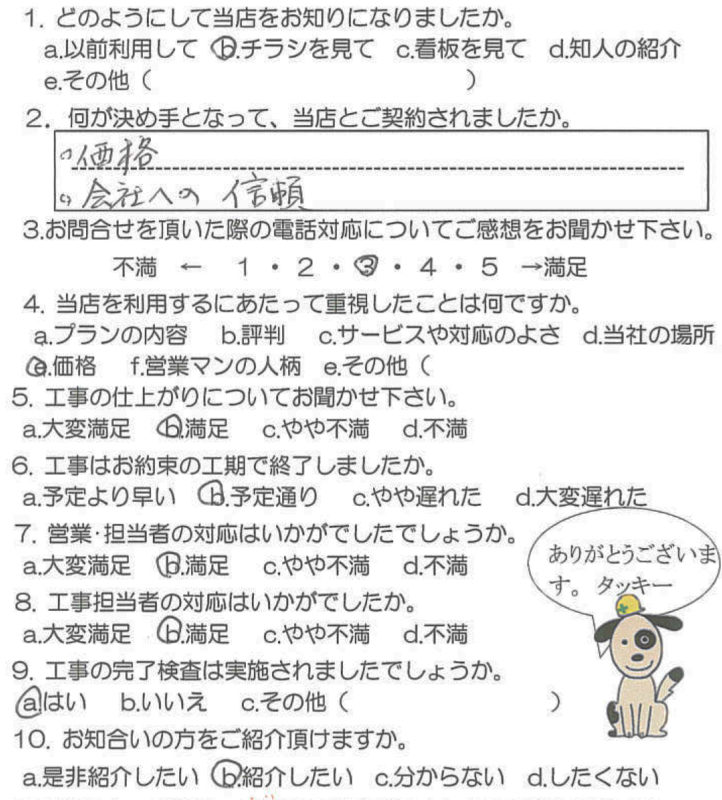 1. どのようにして当店をお知りになりましたか。
a.以前利用して b.チラシを見て c.看板を見て d.知人の紹介
e.その他（ ）
2. 何が決め手となって、当店とご契約されましたか。
○価格
○会社への信頼
3.お問合せを頂いた際の電話対応についてご感想をお聞かせ下さい。
不満 ← 1・2・3・4・5 →満足
4. 当店を利用するにあたって重視したことは何ですか。
a.プランの内容 b.評判 c.サービスや対応のよさ d.当社の場所
e.価格 f.営業マンの人柄 e.その他（
5. 工事の仕上がりについてお聞かせ下さい。
a.大変満足 b.満足 c.やや不満 d.不満
6. 工事はお約束の工期で終了しましたか。
a.予定より早い b.予定通り c.やや遅れた d.大変遅れた
7. 営業・担当者の対応はいかがでしたでしょうか。
a.大変満足 b.満足 c.やや不満 d.不満
ありがとうございま
す。 タッキー
8. 工事担当者の対応はいかがでしたか。
a.大変満足 b.満足 c.やや不満 d.不満
9. 工事の完了検査は実施されましたでしょうか。
a.はい b.いいえ c.その他（ ）
10. お知合いの方をご紹介頂けますか。
a.是非紹介したい b.紹介したい c.分からない d.したくない